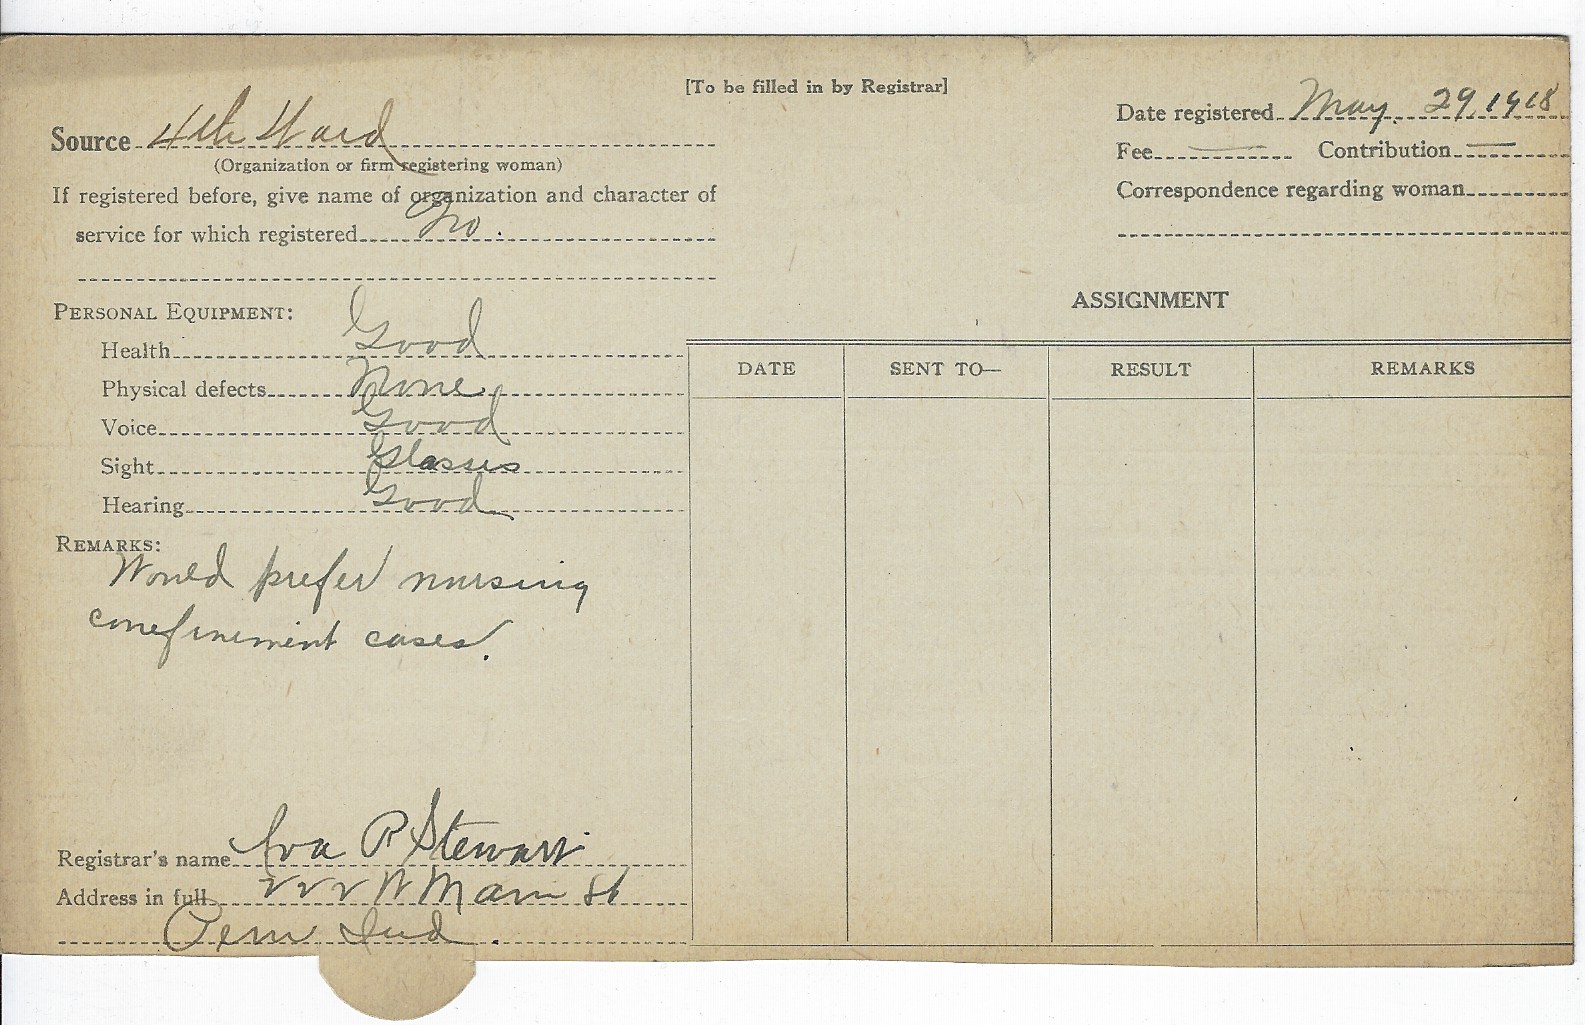 [To be filled in by Registrar]
Source 4th Ward
(Organization or firm registering woman)
If registered before, give name of organization and character of
service for which registered No.
Date registered May. 29, 1918
Fee — Contribution —
Correspondence regarding woman
PERSONAL EQUIPMENT:
Health Good
Physical defects None
Voice Good
Sight Glasses
Hearing Good
REMARKS:
Would prefer nursing
confinement cases.
Registrar's name Iva P Stewart
Address in full 222 W Main St
Peru Ind.
ASSIGNMENT
DATE SENT TO— RESULT REMARKS